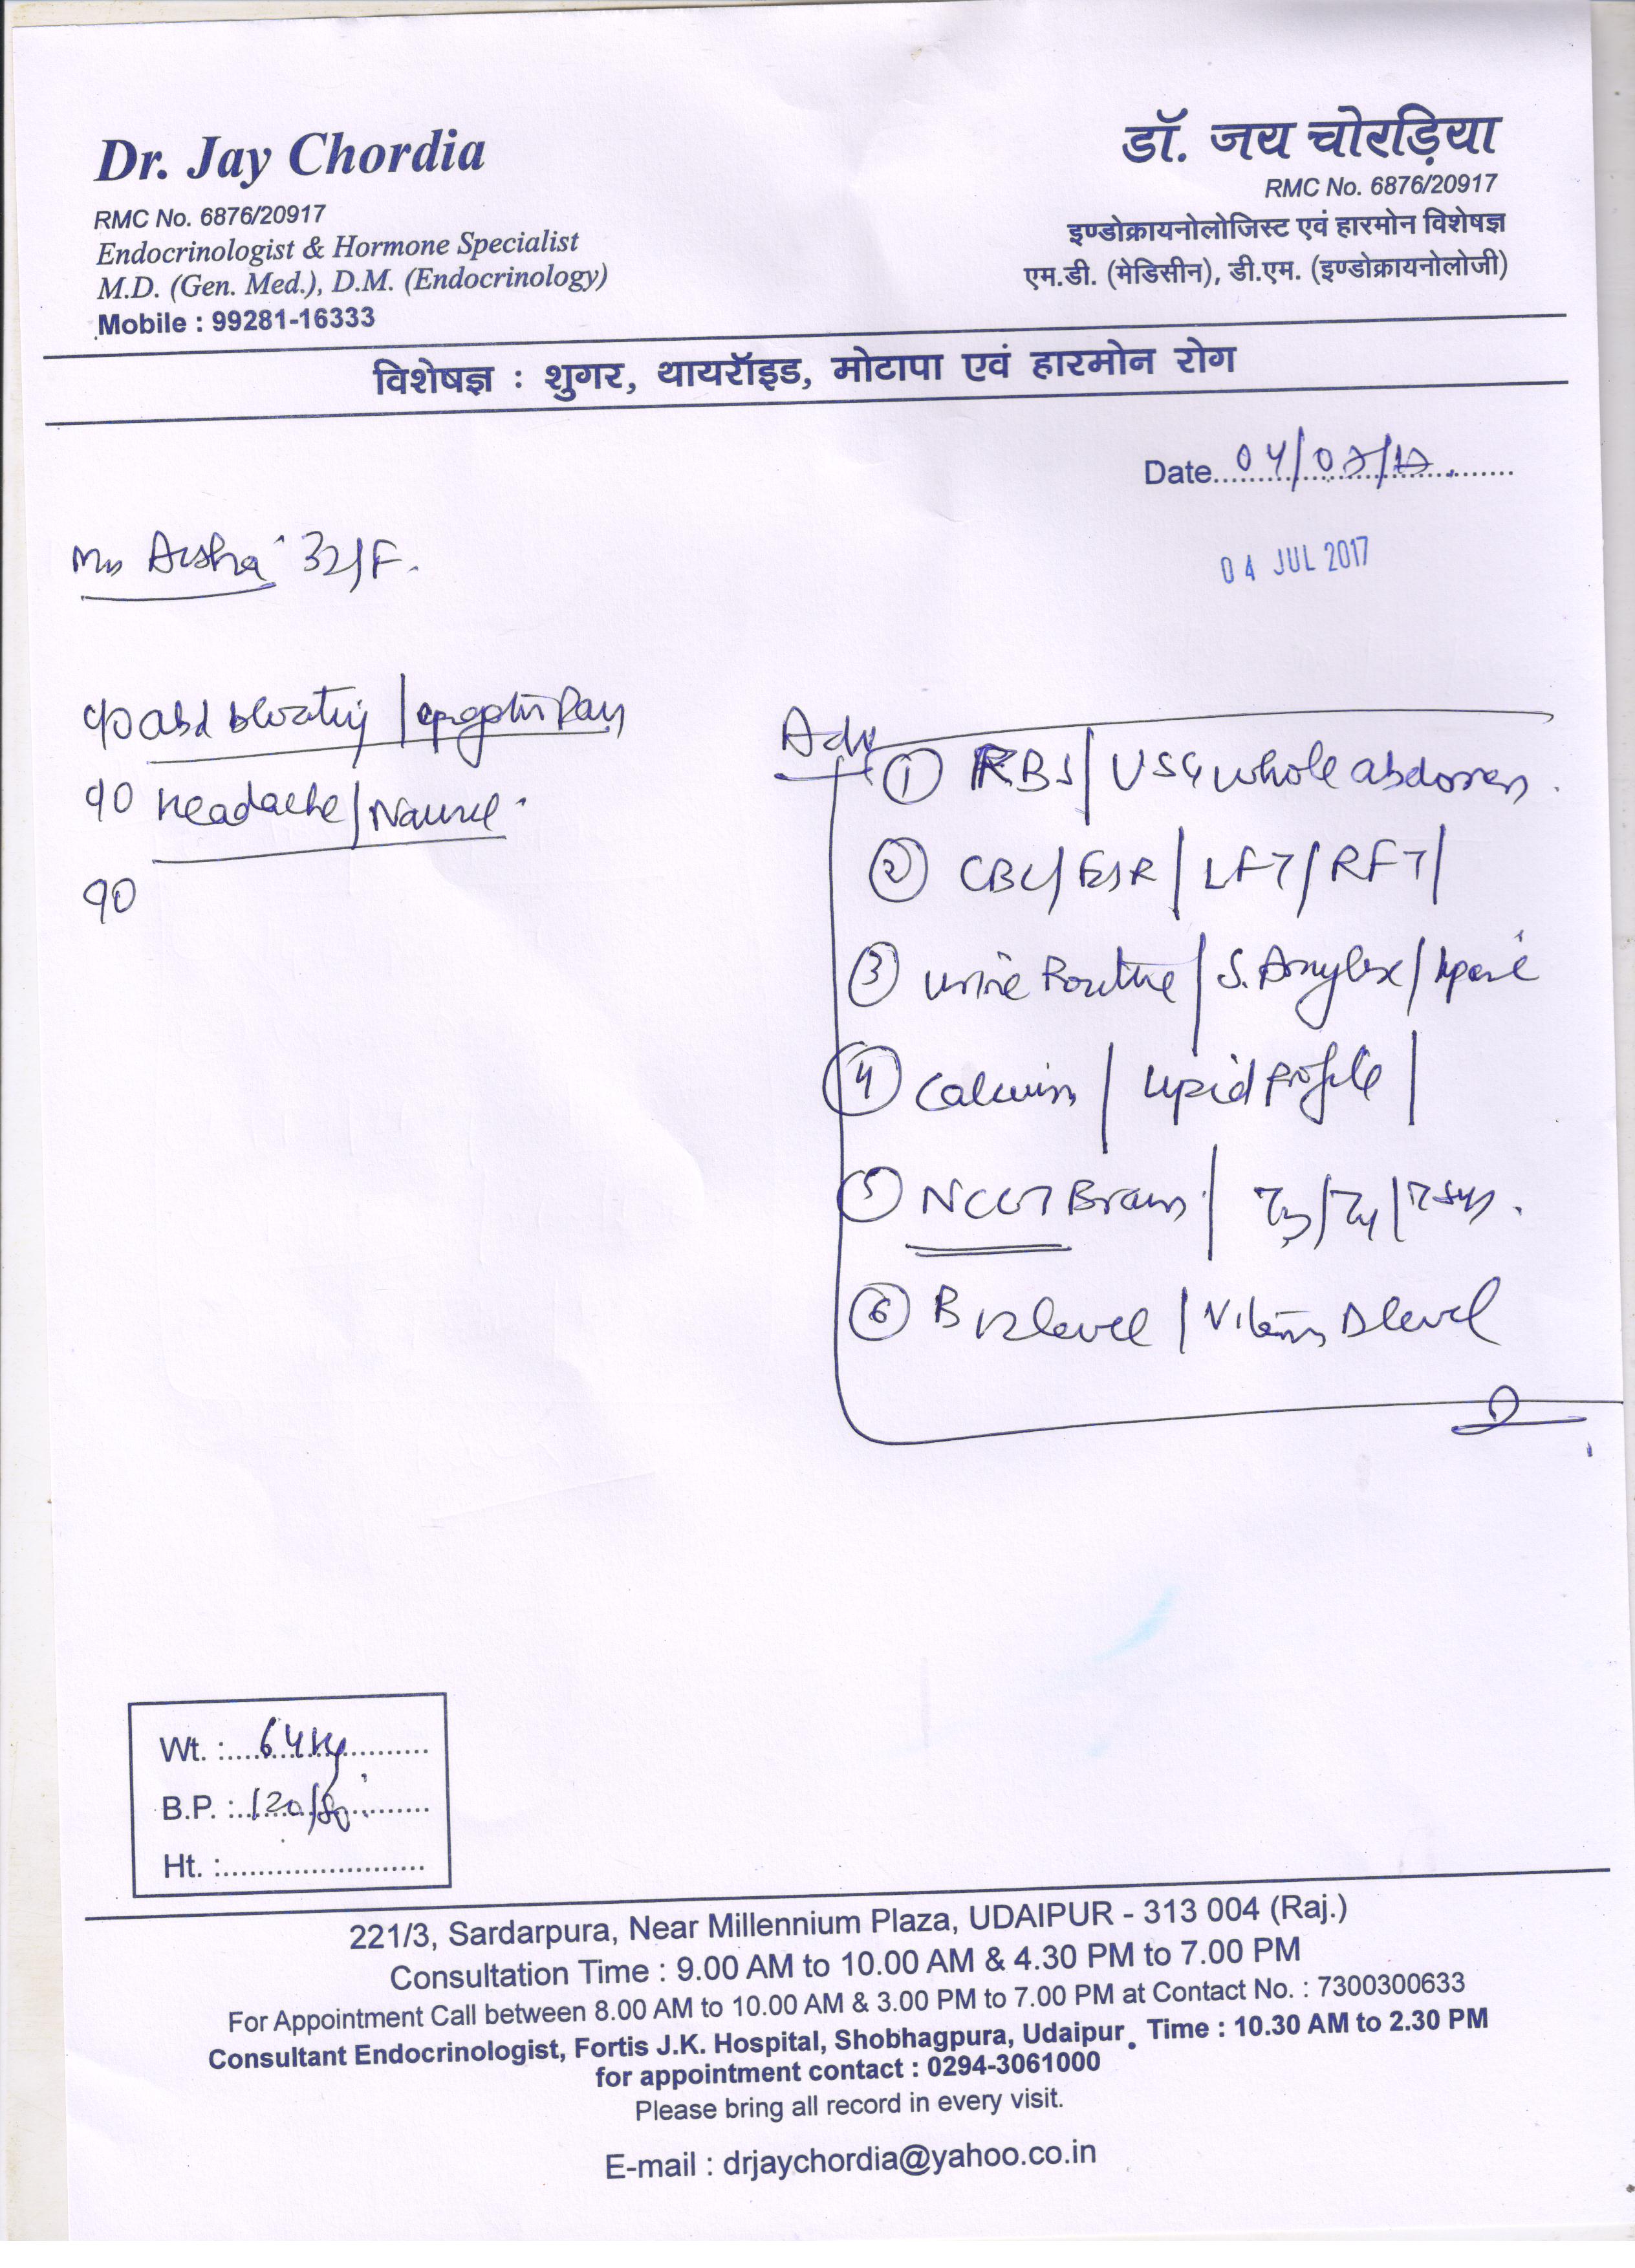 Dr. Jay Chordia
RMC No. 6876/20917
Endocrinologist & Hormone Specialist
M.D. (Gen. Med.), D.M. (Endocrinology)
Mobile : 99281-16333
डॉ. जय चोरड़िया
RMC No. 6876/20917
इण्डोक्रायनोलोजिस्ट एवं हारमोन विशेषज्ञ
एम.डी. (मेडिसीन), डी.एम. (इण्डोक्रायनोलोजी)
विशेषज्ञ : शुगर, थायरॉइड, मोटापा एवं हारमोन रोग
Date 04/07/17
04 JUL 2017
Aisha 32/F.
c/o abd bloating /
c/o Headache /
c/o
Adv
① RBS / USG whole abdomen.
② CBC / ESR / LFT / RFT /
③ Urine Routine / S. Amylase / lipase
④ Calcium / Lipid profile /
⑤ NCCT Brain / T3 / T4 / TSH.
⑥ B12 level / Vitamin D level
Wt. : 64 kg
B.P. : 120/80
Ht. :
221/3, Sardarpura, Near Millennium Plaza, UDAIPUR - 313 004 (Raj.)
Consultation Time : 9.00 AM to 10.00 AM & 4.30 PM to 7.00 PM
For Appointment Call between 8.00 AM to 10.00 AM & 3.00 PM to 7.00 PM at Contact No. : 7300300633
Consultant Endocrinologist, Fortis J.K. Hospital, Shobhagpura, Udaipur. Time : 10.30 AM to 2.30 PM
for appointment contact : 0294-3061000
Please bring all record in every visit.
E-mail : drjaychordia@yahoo.co.in